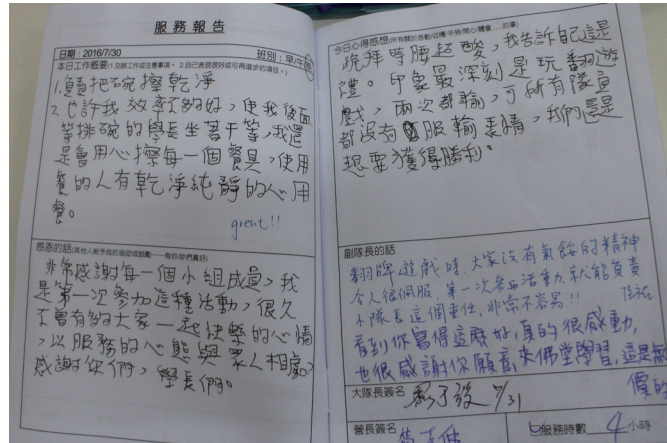 服務報告
日期：2016/7/30
班別：早/午
本日工作概要(1.交辦工作或注意事項。2.自己表現很好或可再進步的項目。)
1.負責把碗擦乾淨
2.也許我效率不夠好，使我後面
等排碗的學長坐著干等，我還
是會用心擦每一個餐具，使用
餐的人有乾淨純靜的心用
餐。
great!!
感恩的話(其他人給予我的協助或鼓勵——有你/妳們真好)
非常感謝每一個小組成員，我
是第一次參加這種活動，很久
不曾有夠大家一起快樂的心情
，以服務的心態與眾人相處，
感謝你們，學長們。
今日心得感想(所有關於感動/收穫/辛勞/開心/體會……的事)
跪拜等腰越酸，我告訴自己這是
禮。印象最深刻是玩翻牌遊
戲，兩次都輸，可所有隊員
都沒有服輸表情，我們還是
想要獲得勝利。
副隊長的話
翻牌遊戲時，大家沒有氣餒的精神
令人很佩服。第一次參加活動就能負責
小隊長這個重任，非常不容易!!
看到你寫得這麼好，真的很感動，
也很感謝你願意來佛堂學習，這是無
價的
大隊長簽名
7/31
營長簽名
服務時數 4 小時